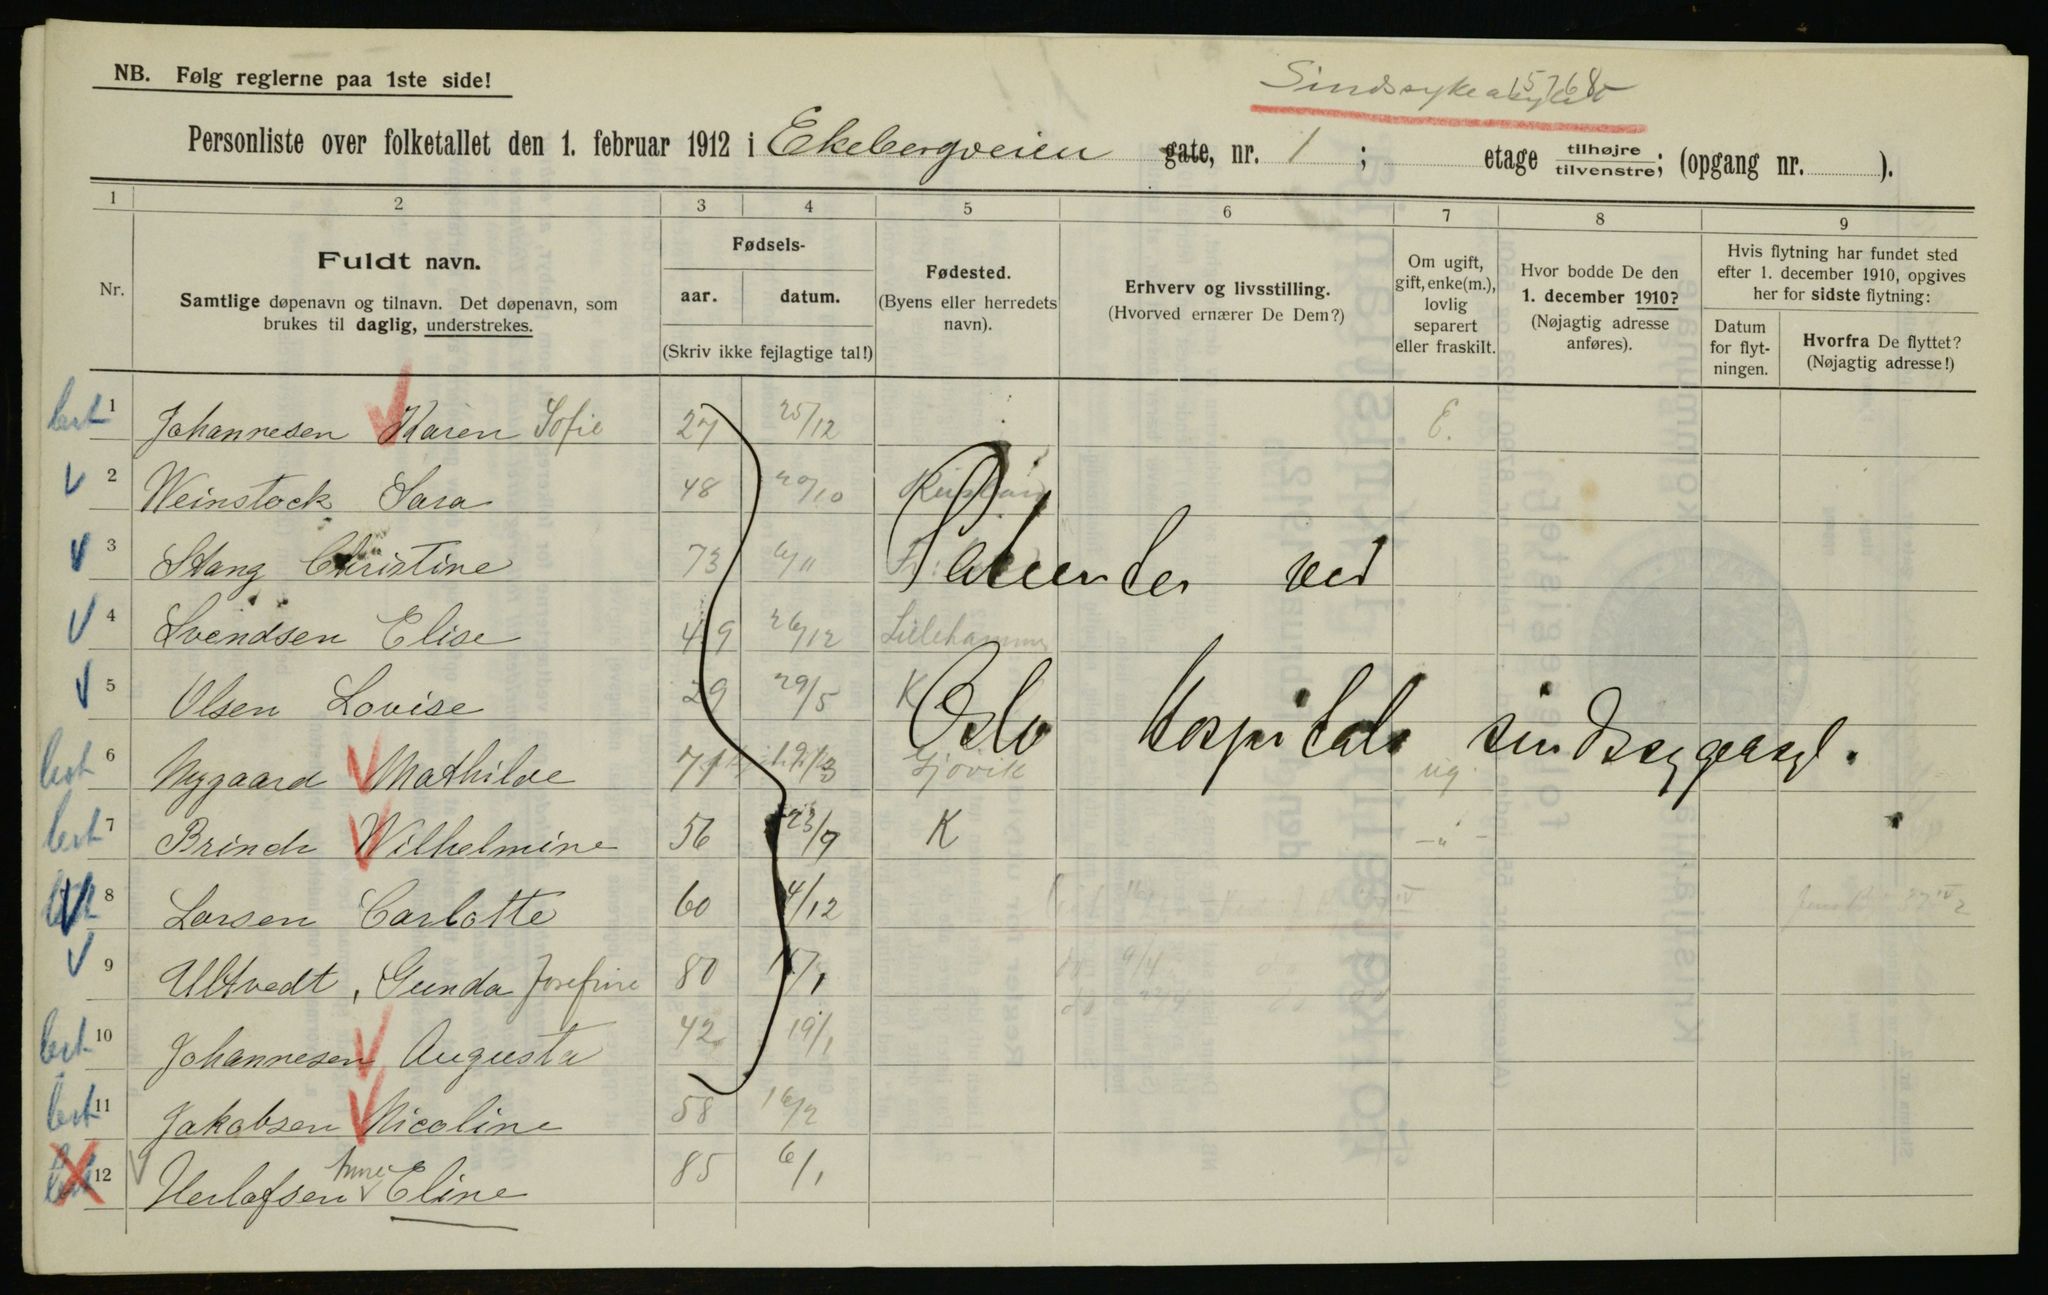 NB. Følg reglerne paa 1ste side!
Sindssykeasylet 15768
Personliste over folketallet den 1. februar 1912 i Ekebergveien gate, nr. 1 ; etage tilhøjre tilvenstre; (opgang nr. ).
1 2 3 4 5 6 7 8 9
Nr.
Fuldt navn.
Samtlige døpenavn og tilnavn. Det døpenavn, som
brukes til daglig, understrekes.
Fødsels-
aar. datum.
(Skriv ikke fejlagtige tal!)
Fødested.
(Byens eller herredets
navn).
Erhverv og livsstilling.
(Hvorved ernærer De Dem?)
Om ugift,
gift, enke(m.),
lovlig
separert
eller fraskilt.
Hvor bodde De den
1. december 1910?
(Nøjagtig adresse
anføres).
Hvis flytning har fundet sted
efter 1. december 1910, opgives
her for sidste flytning:
Datum
for flyt-
ningen.
Hvorfra De flyttet?
(Nøjagtig adresse!)
1 Johannesen Karen Sofie 27 25/12 E.
2 Weinstock Sara 48 20/10 Russland
3 Stang Christine 73 6/11
Patienter ved
4 Svendsen Elise 49 26/12 Lillehammer
5 Olsen Lovise 29 29/5 K
Oslo Hospitals sindssygeasyl.
6 Nygaard Mathilde 71 Gjøvik ug.
7 Brinch Wilhelmine 56 23/9 K -"-
8 Larsen Carlotte 60 4/12
9 Ultvedt, Gunda Josefine 80 15/1
10 Johannesen Augusta 42 19/1
11 Jakobsen Nicoline 58 16/2
12 Herlofsen Anne Eline 85 6/1